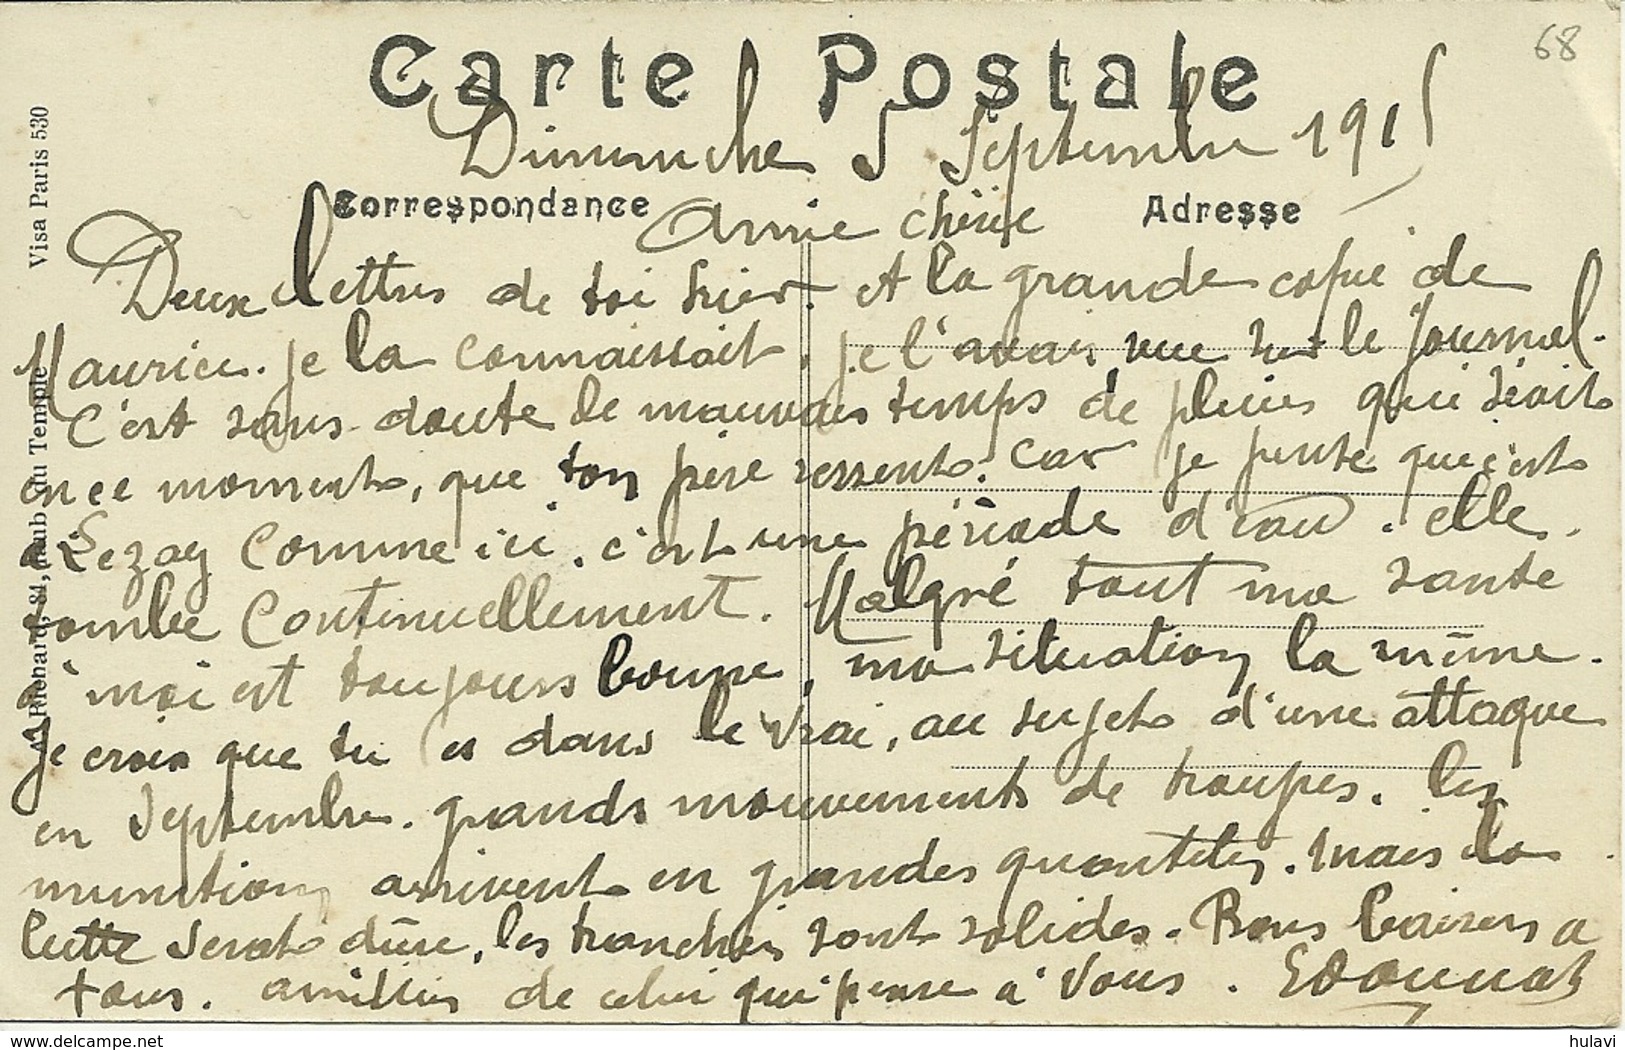 68
Carte Postale
Dimanche 5 Septembre 1915
Correspondance
Adresse
Amie chérie
Deux lettres de toi hier. et la grande copie de
Maurice. je la connaissait. je l'avais vue sur le journal.
C'est sans doute le mauvais temps de pluies qui
en ce moment, que ton père ressent. car je pense que c'est
à Lezay comme ici. c'est une période d'eau. elle.
tombe continuellement. Malgré tout ma santé
à moi est toujours bonne, ma situation la même.
je crois que tu es dans le vrai, au sujet d'une attaque
en Septembre. grands mouvements de troupes. les
munitions arrivent en grandes quantités. mais la
lutte serat dûre, les tranchées sont solides. Bons baisers a
tous. amitiés de celui qui pense à vous. Edouard
A. Richard, 84, faub du Temple
Visa Paris 530
hulavi